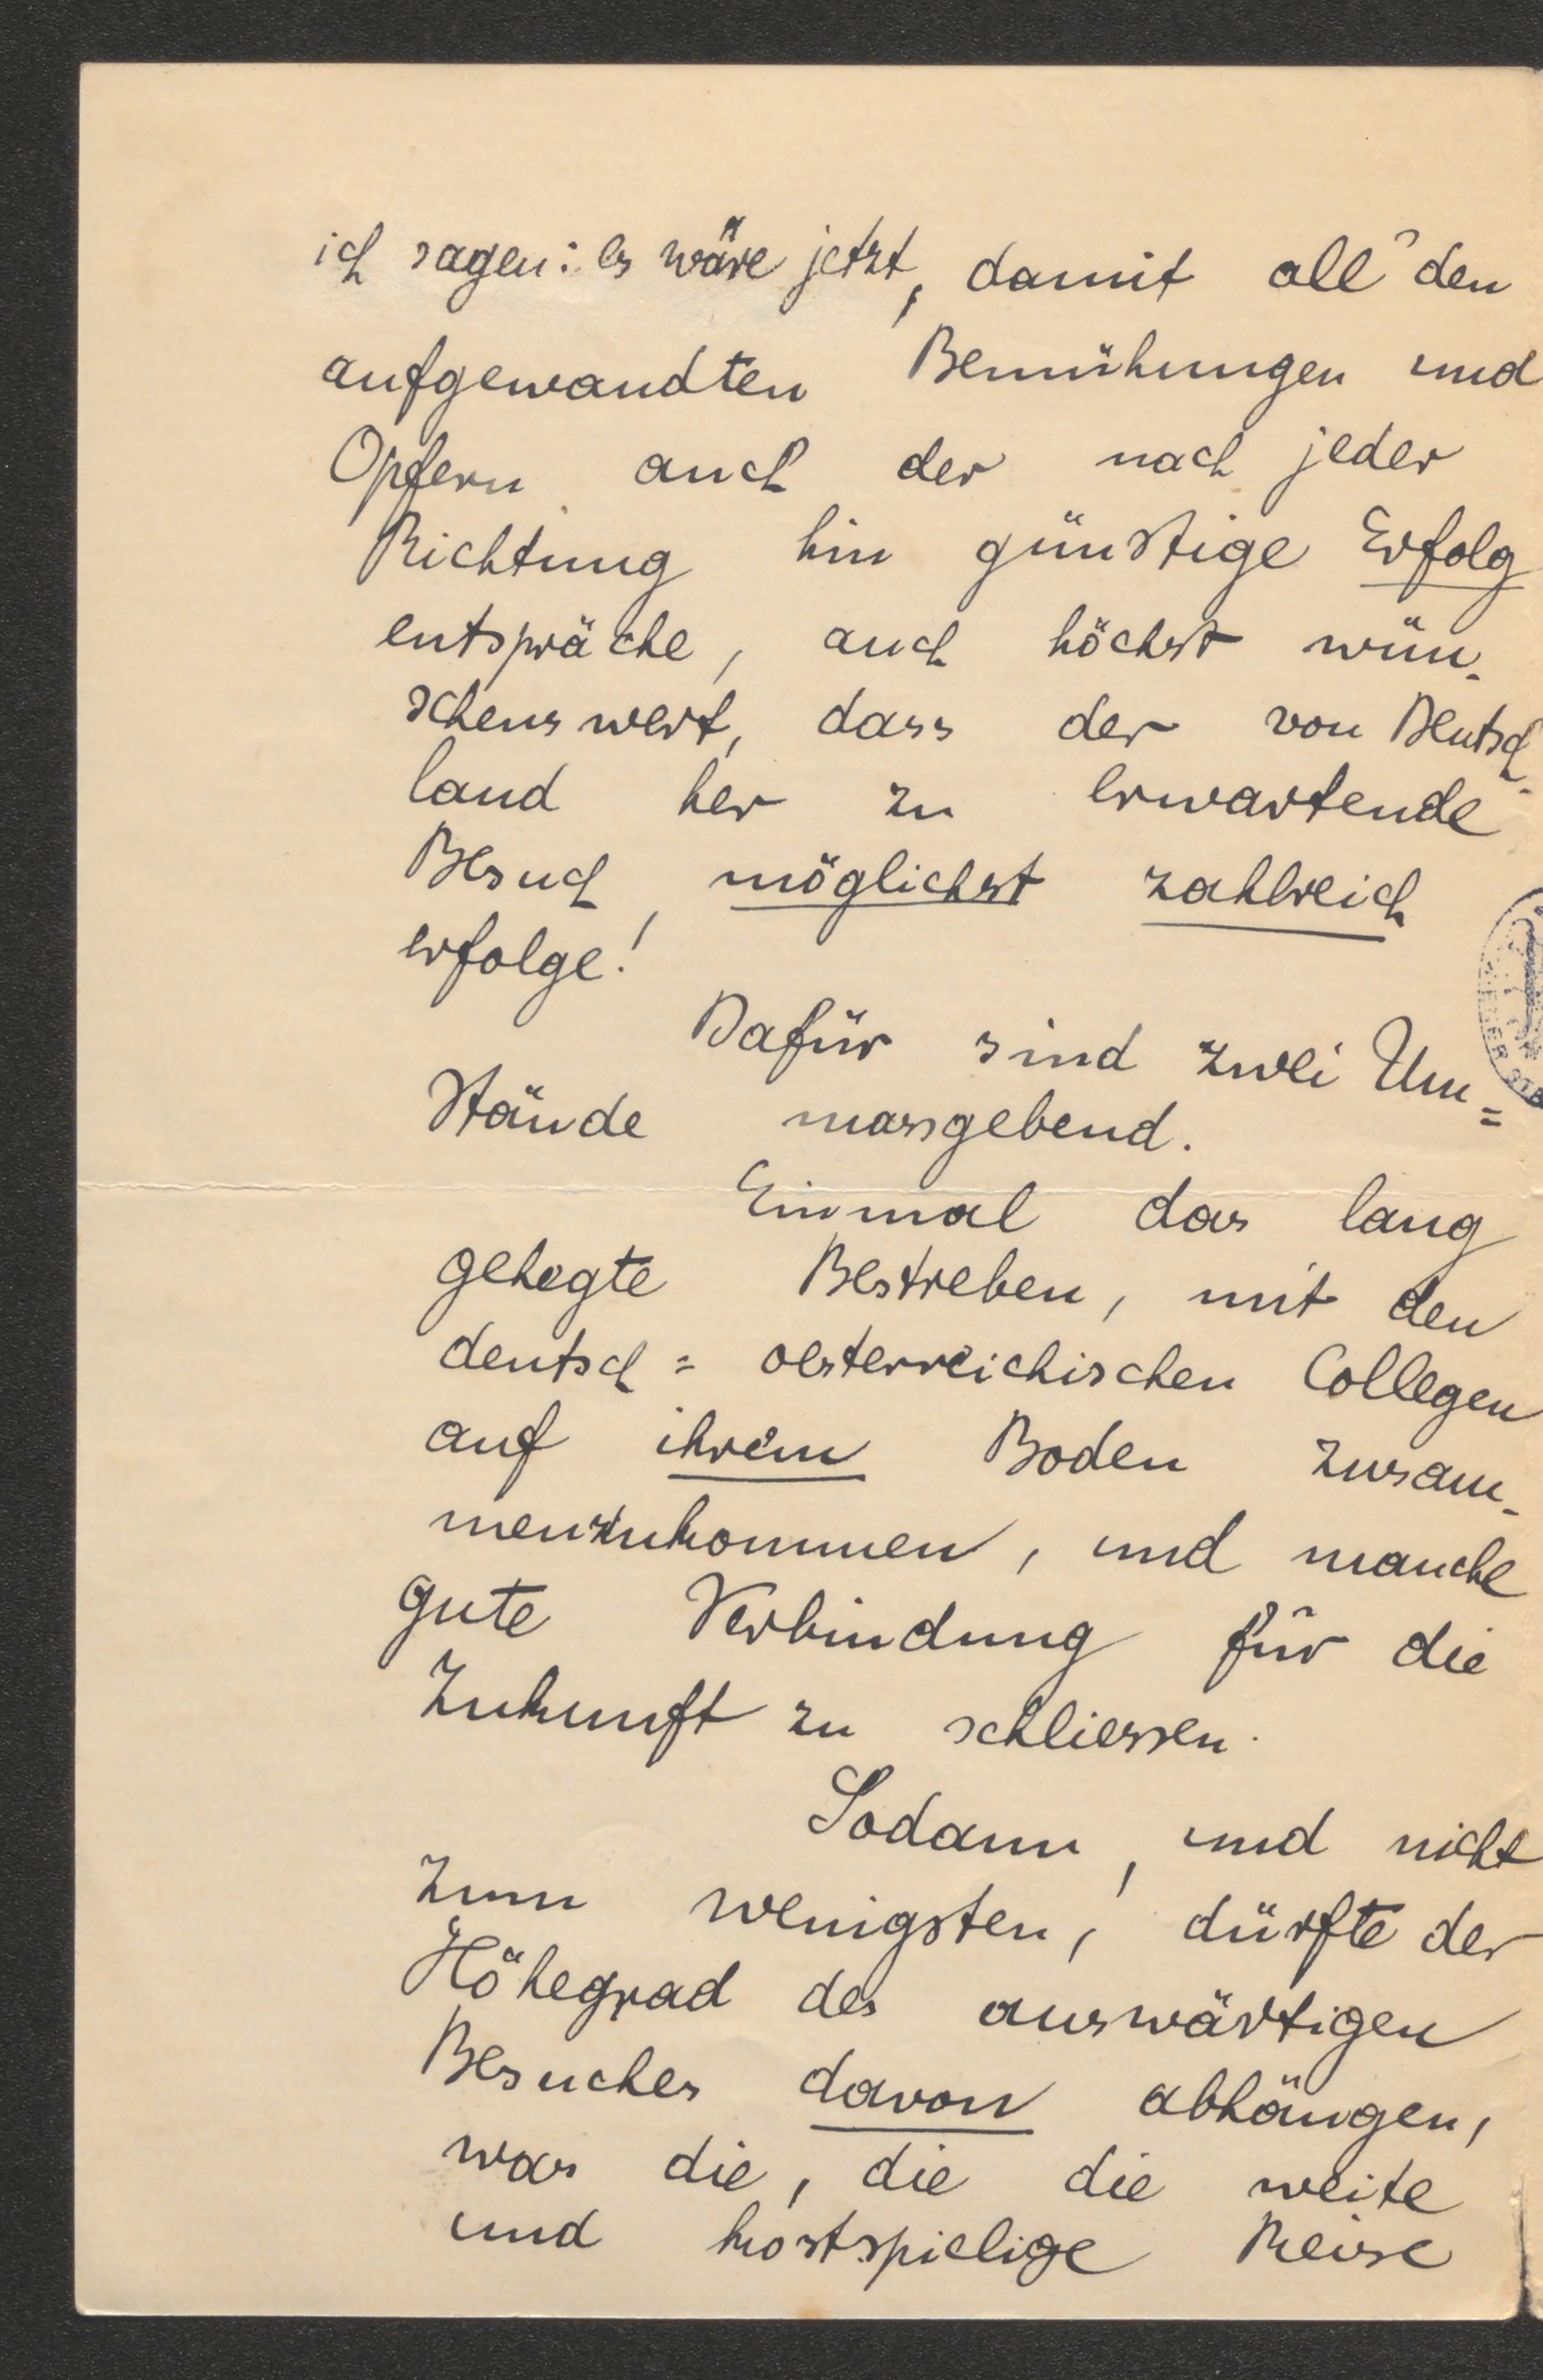 ich sagen: es wäre jetzt, damit all' den
aufgewandten Bemühungen und
Opfern auch der nach jeder
Richtung hin günstige Erfolg
entspräche, auch höchst wün-
schenswert, dass der von Deutsch-
land her zu erwartende
Besuch möglichst zahlreich
erfolge!
Dafür sind zwei Um=
stände massgebend.
Einmal das lang
gehegte Bestreben, mit den
deutsch=oesterreichischen Collegen
auf ihrem Boden zusam-
menzukommen, und manche
gute Verbindung für die
Zukunft zu schliessen.
Sodann, und nicht
zum wenigsten, dürfte der
Höhegrad des auswärtigen
Besuches davon abhängen,
was die, die die weite
und kostspielige Reise